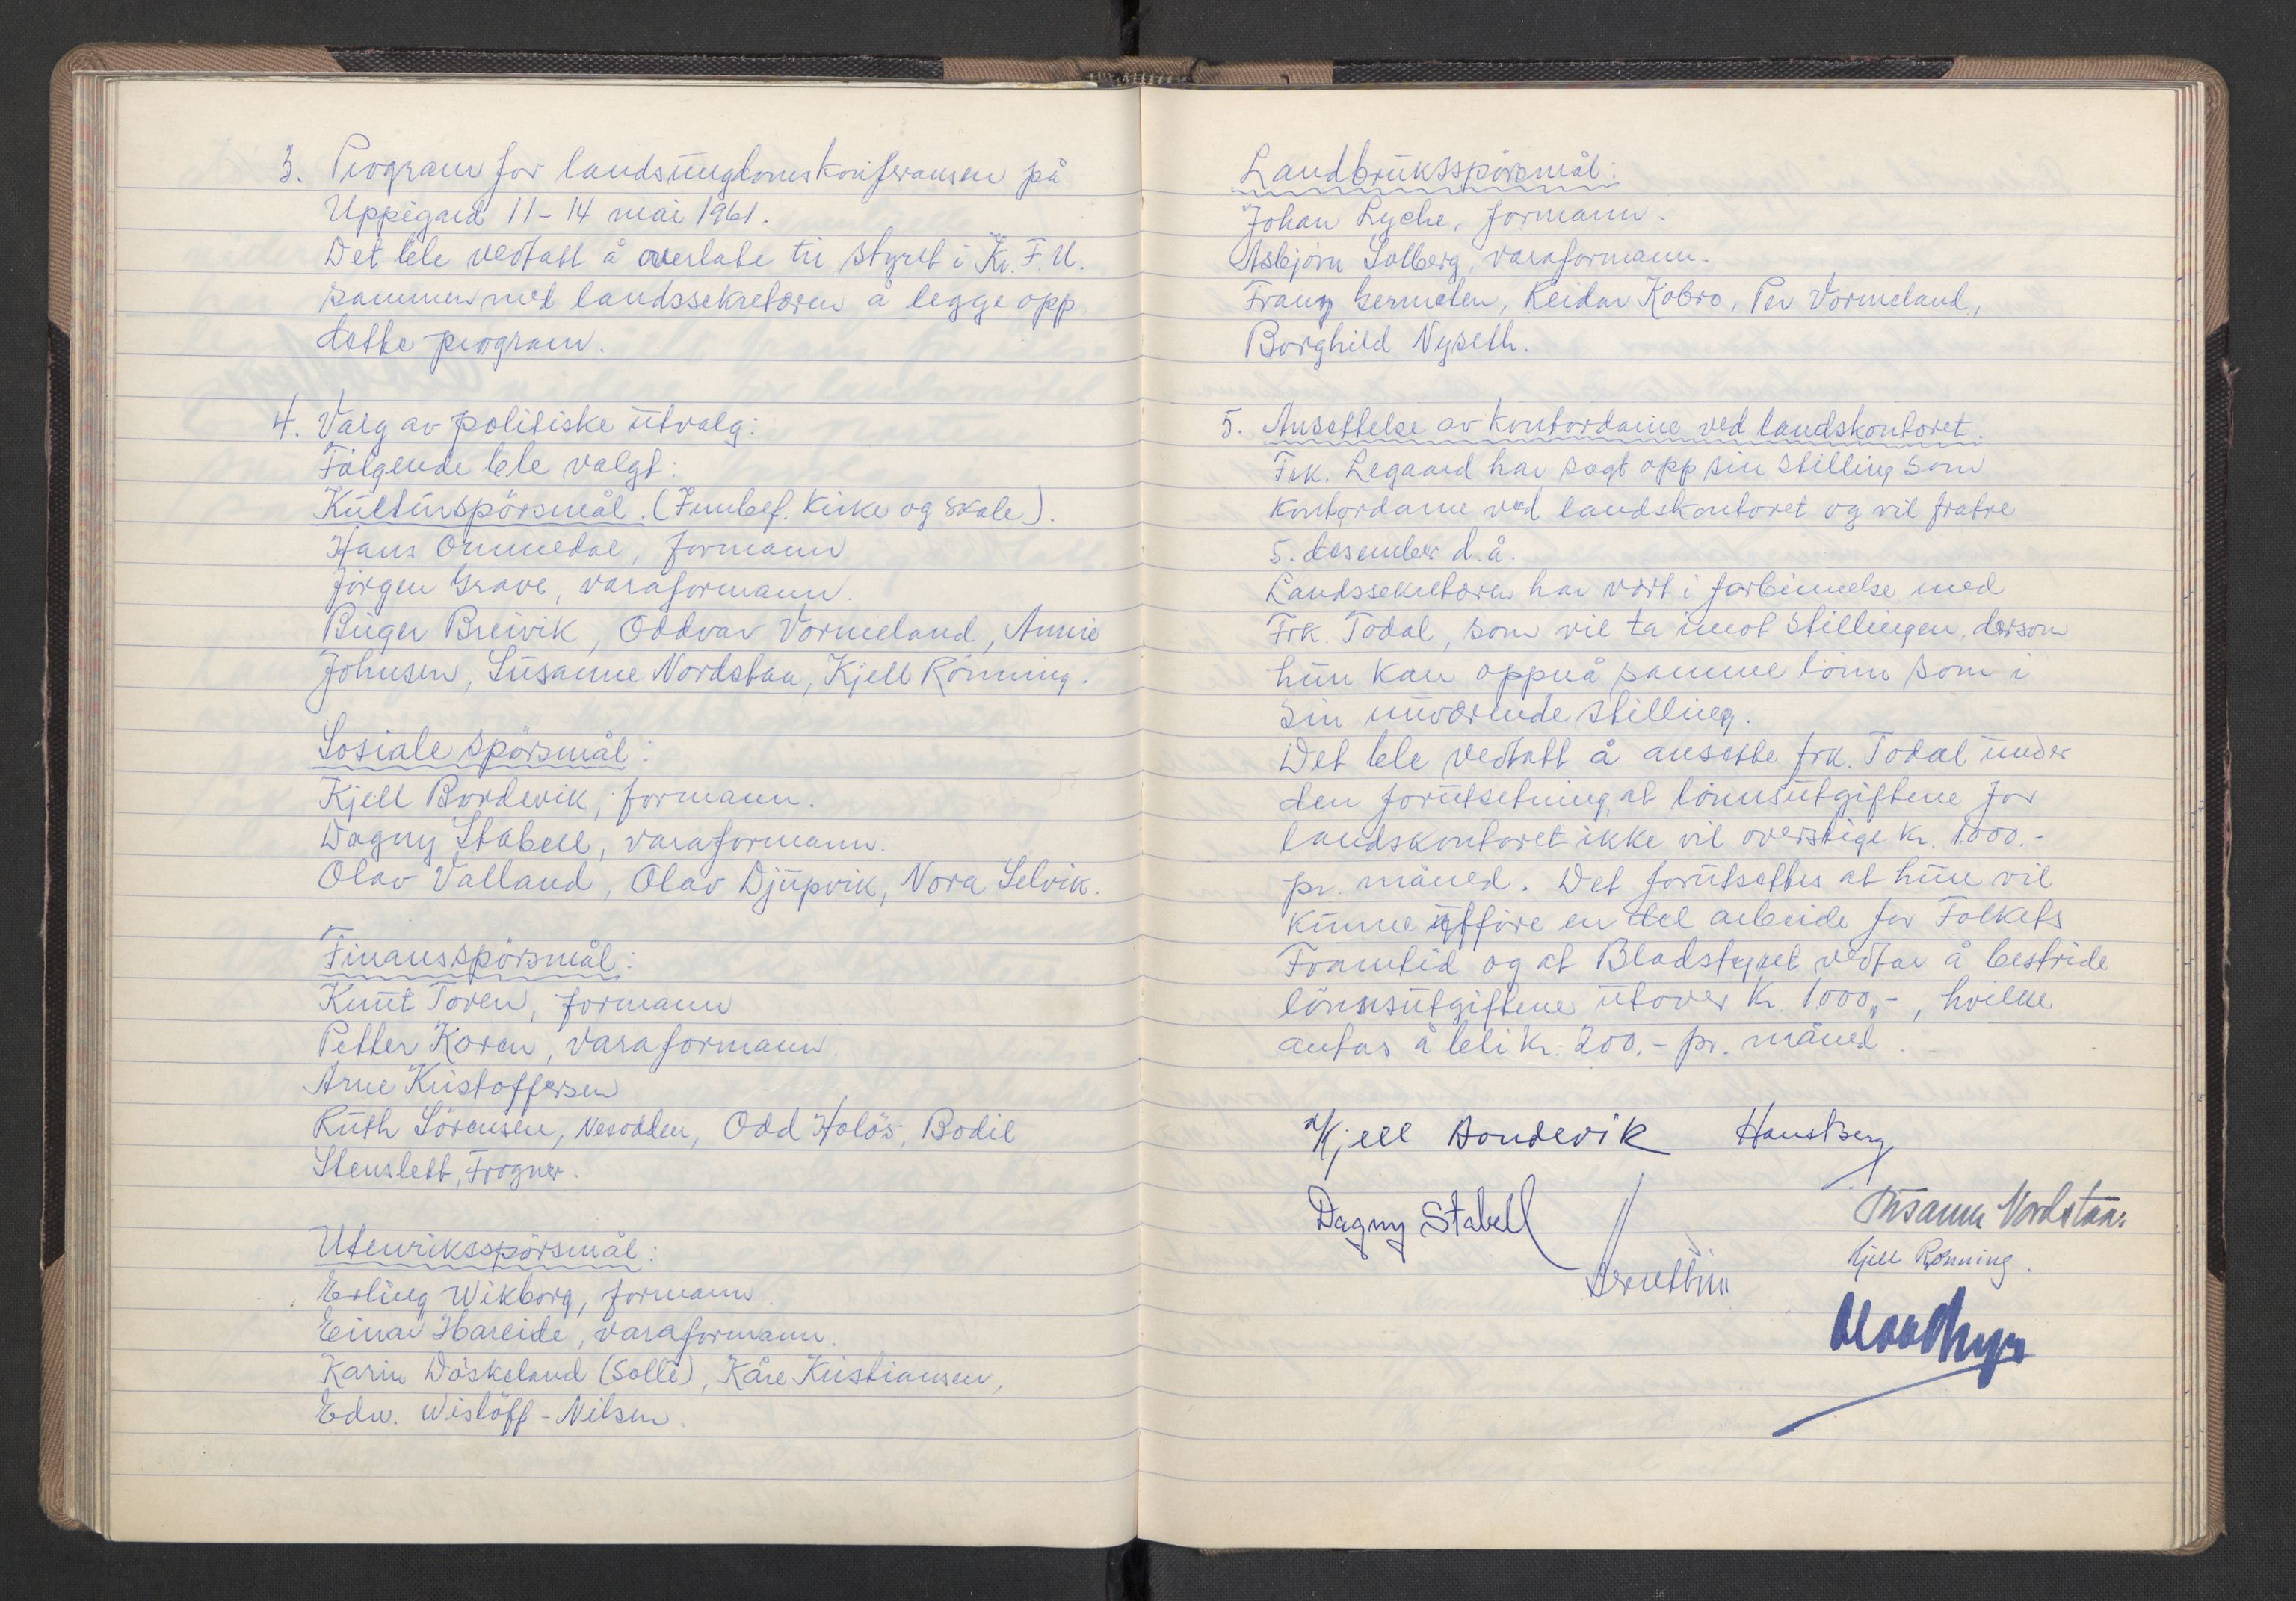 3. Program for landsungdomskonferansen på
Uppigard 11-14 mai 1961.
Det ble vedtatt å overlate til styret i Kr. F. U.
sammen med landssekretæren å legge opp
dette program.
4. Valg av politiske utvalg:
Følgende ble valgt:
Kulturspörsmål. (Innbef. kirke og skole).
Hans Ommedal, formann
Jörgen Grave, varaformann.
Birger Breivik, Oddvar Vormeland, Annie
Johnsen, Susanne Nordstaa, Kjell Rönning.
Sosiale spörsmål:
Kjell Bondevik, formann.
Dagny Stabell, varaformann.
Olav Valland, Olav Djupvik, Nora Selvik.
Finansspörsmål:
Knut Toven, formann
Petter Koren, varaformann.
Arne Kristoffersen
Ruth Sörensen, Nesodden, Odd Holös, Bodil
Stenslett, Frogner.
Utenriksspörsmål:
Erling Wikborg, formann.
Einar Hareide, varaformann.
Karin Döskeland (Solli), Kåre Kristiansen,
Edw. Wislöff-Nilsen.
Landbruksspörsmål:
Johan Lyche, formann.
Asbjörn Solberg, varaformann.
Franz Germeten, Reidar Kobro, Per Vormeland,
Borghild Nyseth.
5. Ansettelse av kontordame ved landskontoret.
Frk. Legaard har sagt opp sin stilling som
kontordame ved landskontoret og vil fratre
5. desember d.å.
Landssekretæren har vært i forbinnelse med
Frk. Todal, som vil ta imot stillingen, dersom
hun kan oppnå samme lönn som i
sin nuværende stilling.
Det ble vedtatt å ansette frk. Todal under
den forutsetning, at lönnsutgiftene for
landskontoret ikke vil overstige kr. 1000.-
pr. måned. Det forutsettes at hun vil
kunne utföre en del arbeide for Folkets
Framtid og at Bladstyret vedtar å bestride
lönnsutgiftene utover kr. 1000,-, hvilke
antas å bli kr. 200.- pr. måned.
Kjell Bondevik Hans Berg
Dagny Stabell
Susanne Nordstaa
Kjell Rönning.